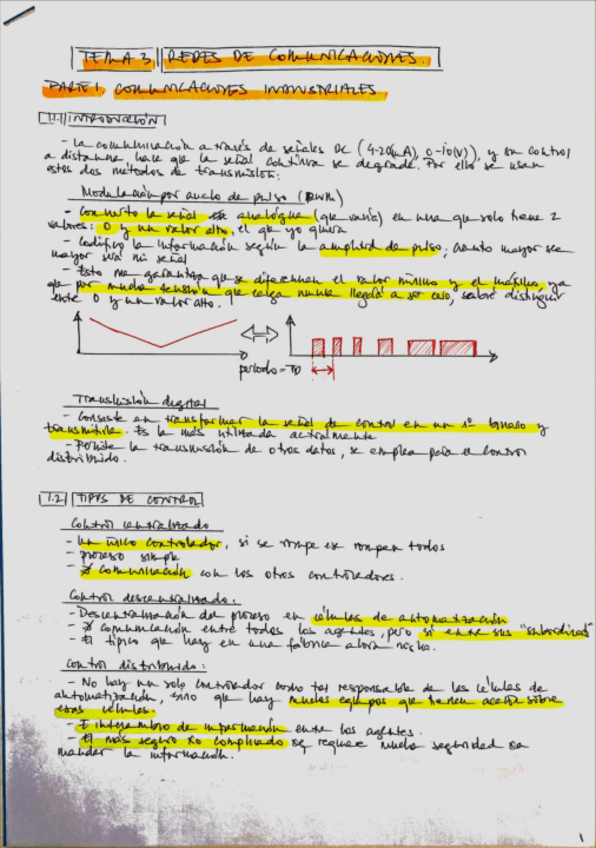 TEMA 3 REDES DE COMUNICACIONES.
PARTE 1. COMUNICACIONES INDUSTRIALES
1.1 INTRODUCCIÓN
- La comunicación a través de señales DC (4-20(mA), 0-10(V)), y su control
a distancia hace que la señal continua se degrade. Por ello se usan
estos dos métodos de transmisión:
Modulación por ancho de pulso (PWM)
- Convierto la señal analógica (que varía) en una que solo tiene 2
valores: 0 y un valor alto, el que yo quiera
- Codifico la información según la amplitud de pulso; cuanto mayor sea
mayor será mi señal
- Esto me garantiza que se diferencien el valor mínimo y el máximo, ya
que por mucha tensión que caiga nunca llegará a ser cero, sabré distinguir
entre 0 y un valor alto.
periodo = TD
Transmisión digital
- Consiste en transformar la señal de control en un nº binario y
transmitirla. Es la más utilizada actualmente
- Permite la transmisión de otros datos, se emplea para el control
distribuido.
1.2 TIPOS DE CONTROL
Control centralizado
- Un único controlador, si se rompe se rompen todos
- proceso simple
- ∄ comunicación con los otros controladores.
Control descentralizado:
- Descentralización del proceso en células de automatización
- ∄ comunicación entre todos los agentes, pero sí entre sus "subordinados"
- El típico que hay en una fábrica ahora mismo.
Control distribuido:
- No hay un solo controlador como tal responsable de las células de
automatización, sino que hay muchos equipos que tienen acceso sobre
esas células.
- ∃ intercambio de información entre los agentes.
- El más seguro xo complicado xq requiere mucha seguridad xa
mandar la información.
1